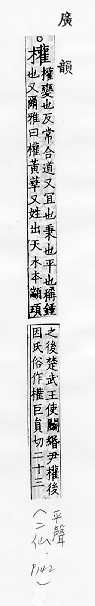 廣韻
權
權變也反常合道又宜也秉也平也稱錘
也又爾雅曰權黃華又姓出天水本顓頊
之後楚武王使鬬緡尹權後
因氏俗作権巨員切二十三
平聲
〈二仙.
P142〉